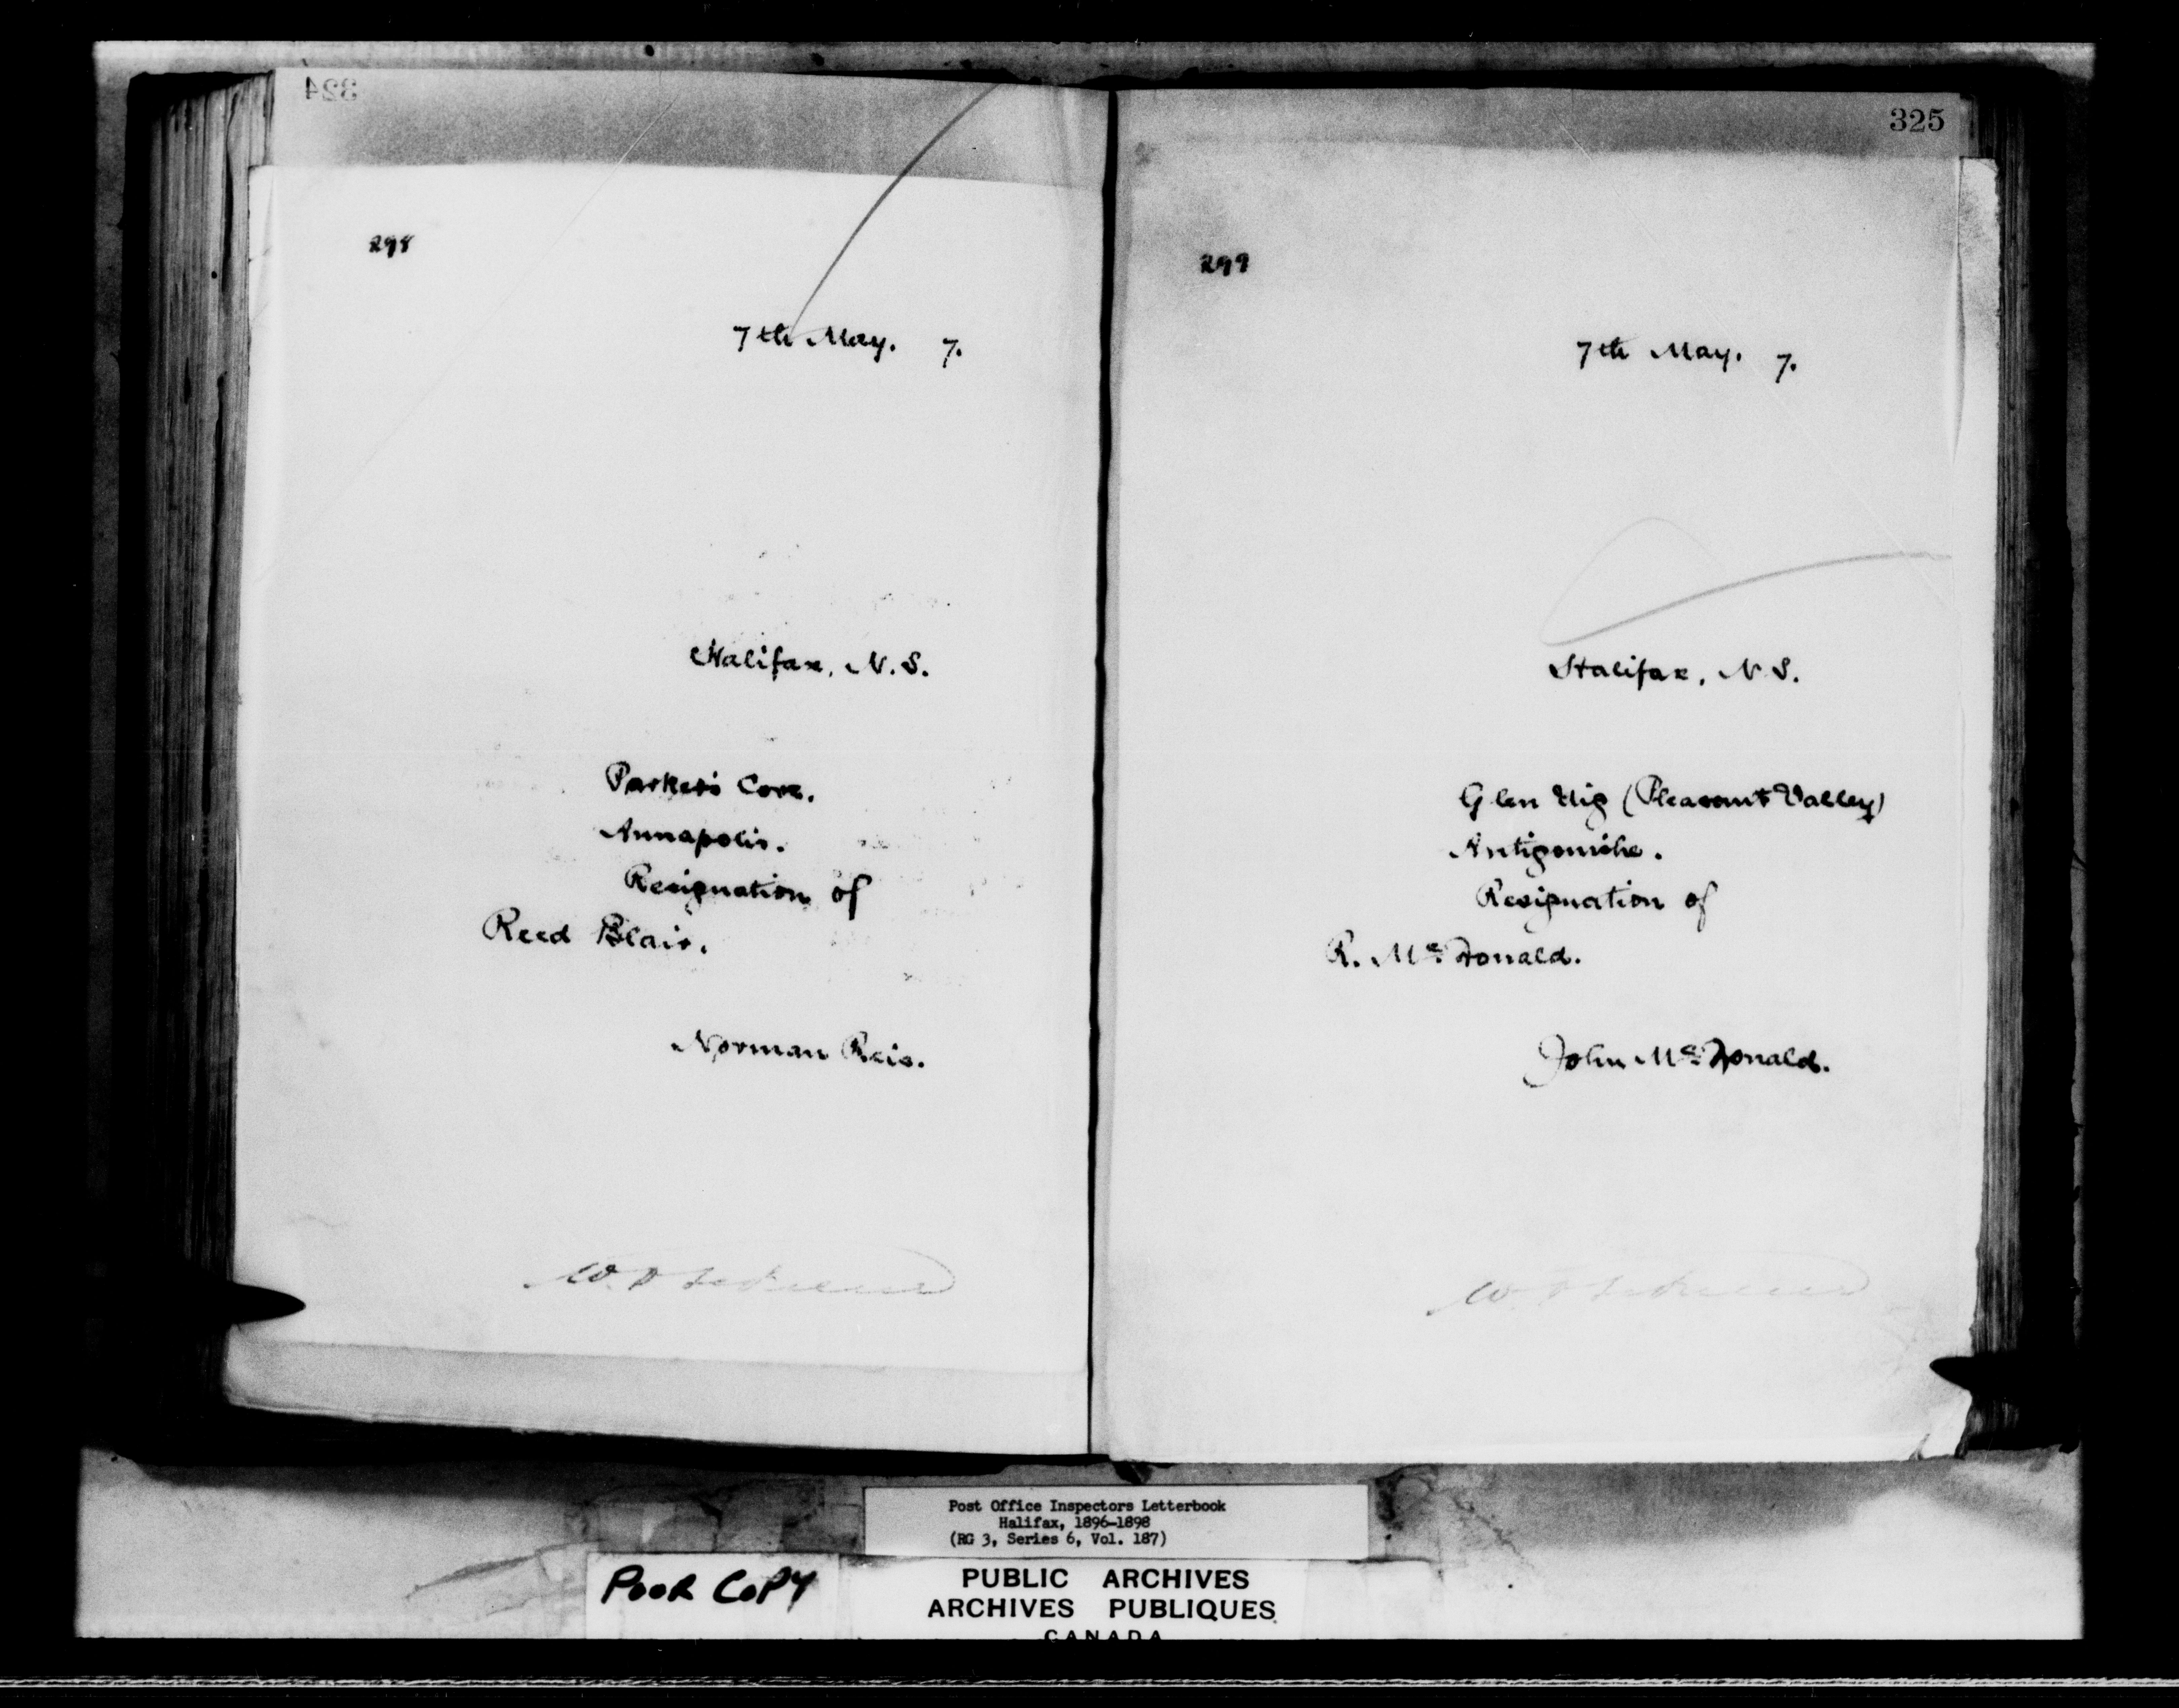 324
298
7th May. 7.
Halifax, N.S.
Parker's Cove.
Annapolis.
Resignation of
Reed Blair.
Norman Reis.
325
299
7th May. 7.
Halifax, N.S.
Glen Uig (Pleasant Valley)
Antigonishe.
Resignation of
R. Mc Donald.
John Mc Donald.
Post Office Inspectors Letterbook
Halifax, 1896-1898
(RG 3, Series 6, Vol. 187)
POOR COPY
PUBLIC ARCHIVES
ARCHIVES PUBLIQUES
CANADA